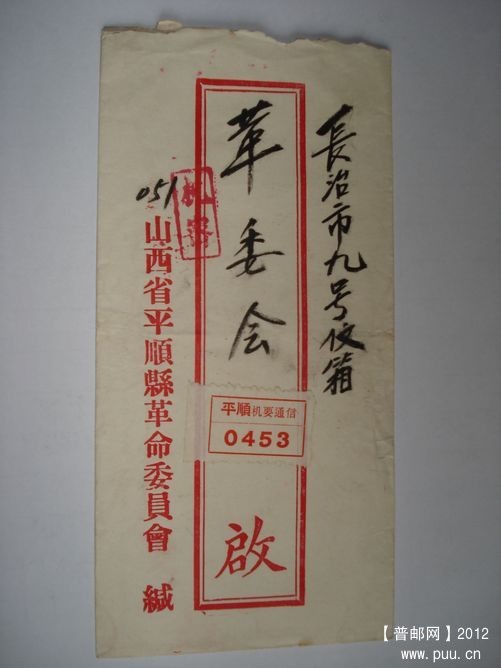 長治市九号仪箱
革委会
啟
平順机要通信
0453
机密
051
山西省平順縣革命委員會 緘
【普邮网】2012
www.puu.cn